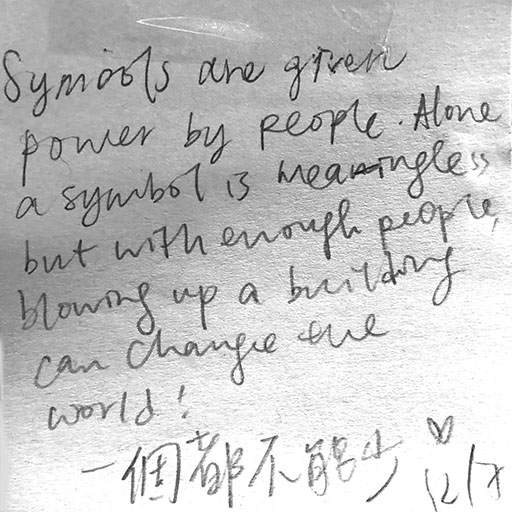 Symbols are given
power by people. Alone
a symbol is meaningless
but with enough people,
blowing up a building
can change the
world!
一個都不能少 ♡
12/7